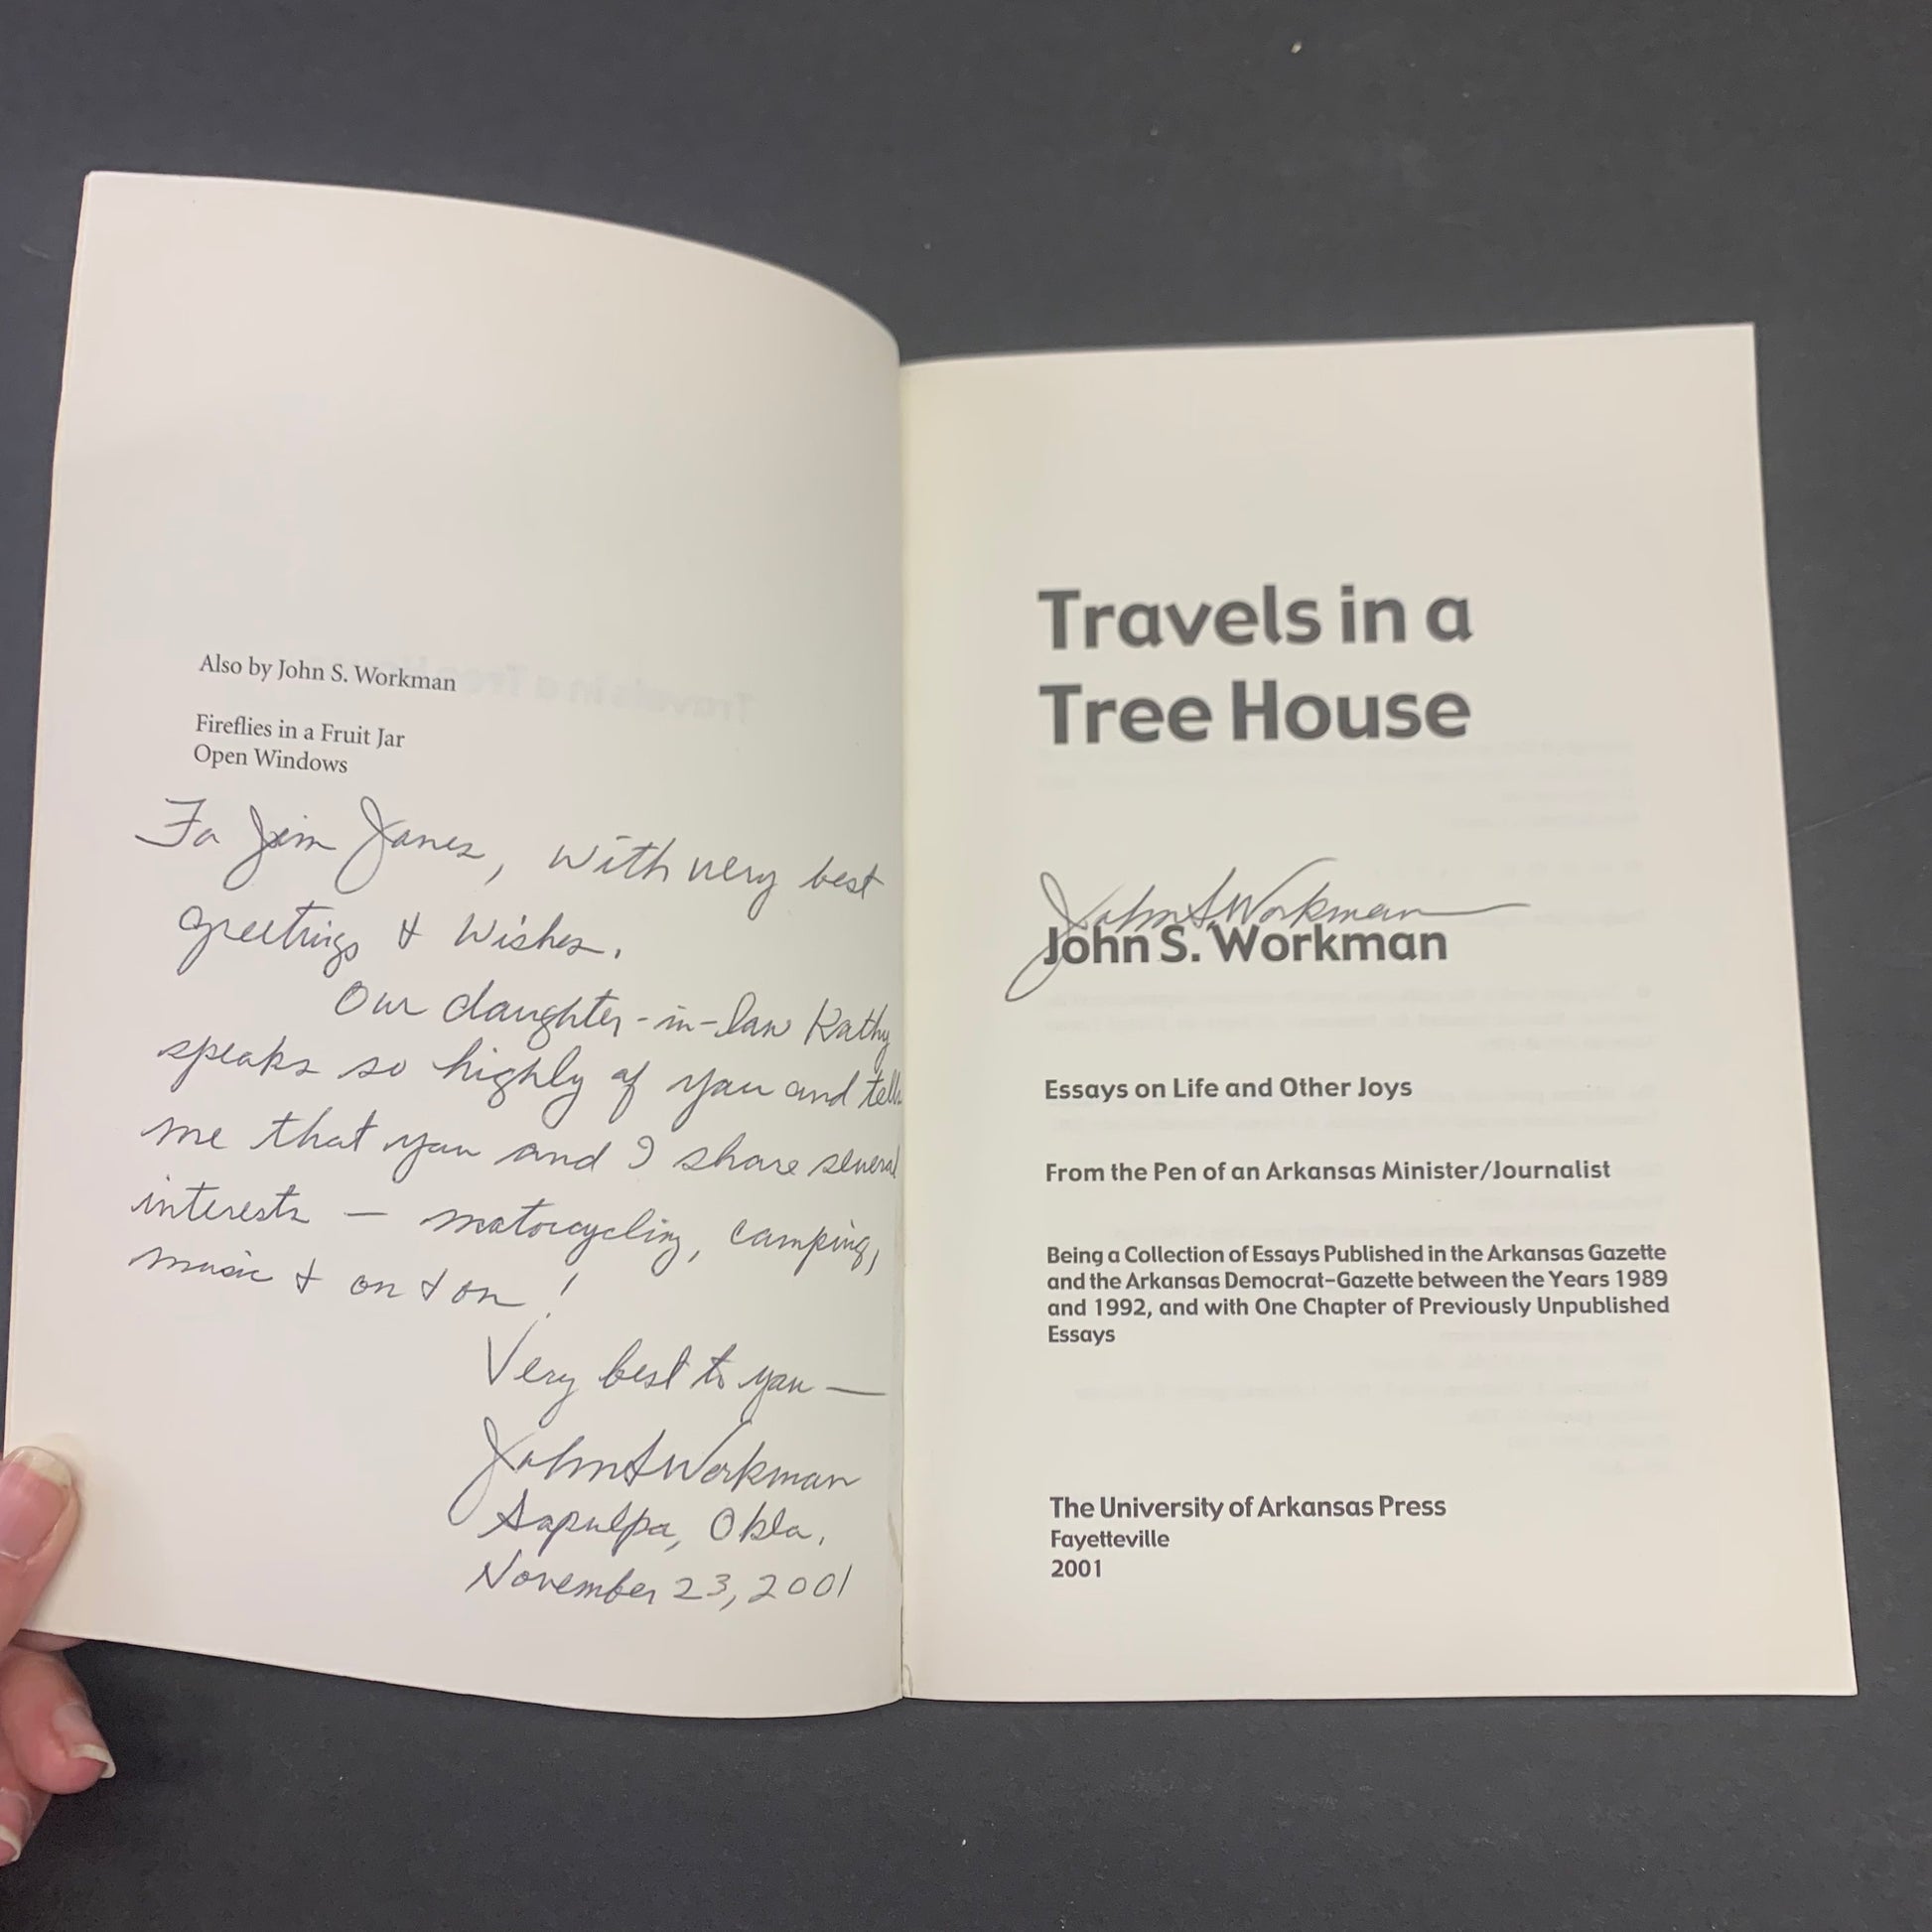 Also by John S. Workman
Fireflies in a Fruit Jar
Open Windows
To Jim Jones, with very best
greetings & wishes.
Our daughter-in-law Kathy
speaks so highly of you and tells
me that you and I share several
interests — motorcycling, camping,
music & on & on!
Very best to you —
John S Workman
Sapulpa, Okla,
November 23, 2001
Travels in a
Tree House
John S. Workman
John S. Workman
Essays on Life and Other Joys
From the Pen of an Arkansas Minister/Journalist
Being a Collection of Essays Published in the Arkansas Gazette
and the Arkansas Democrat-Gazette between the Years 1989
and 1992, and with One Chapter of Previously Unpublished
Essays
The University of Arkansas Press
Fayetteville
2001